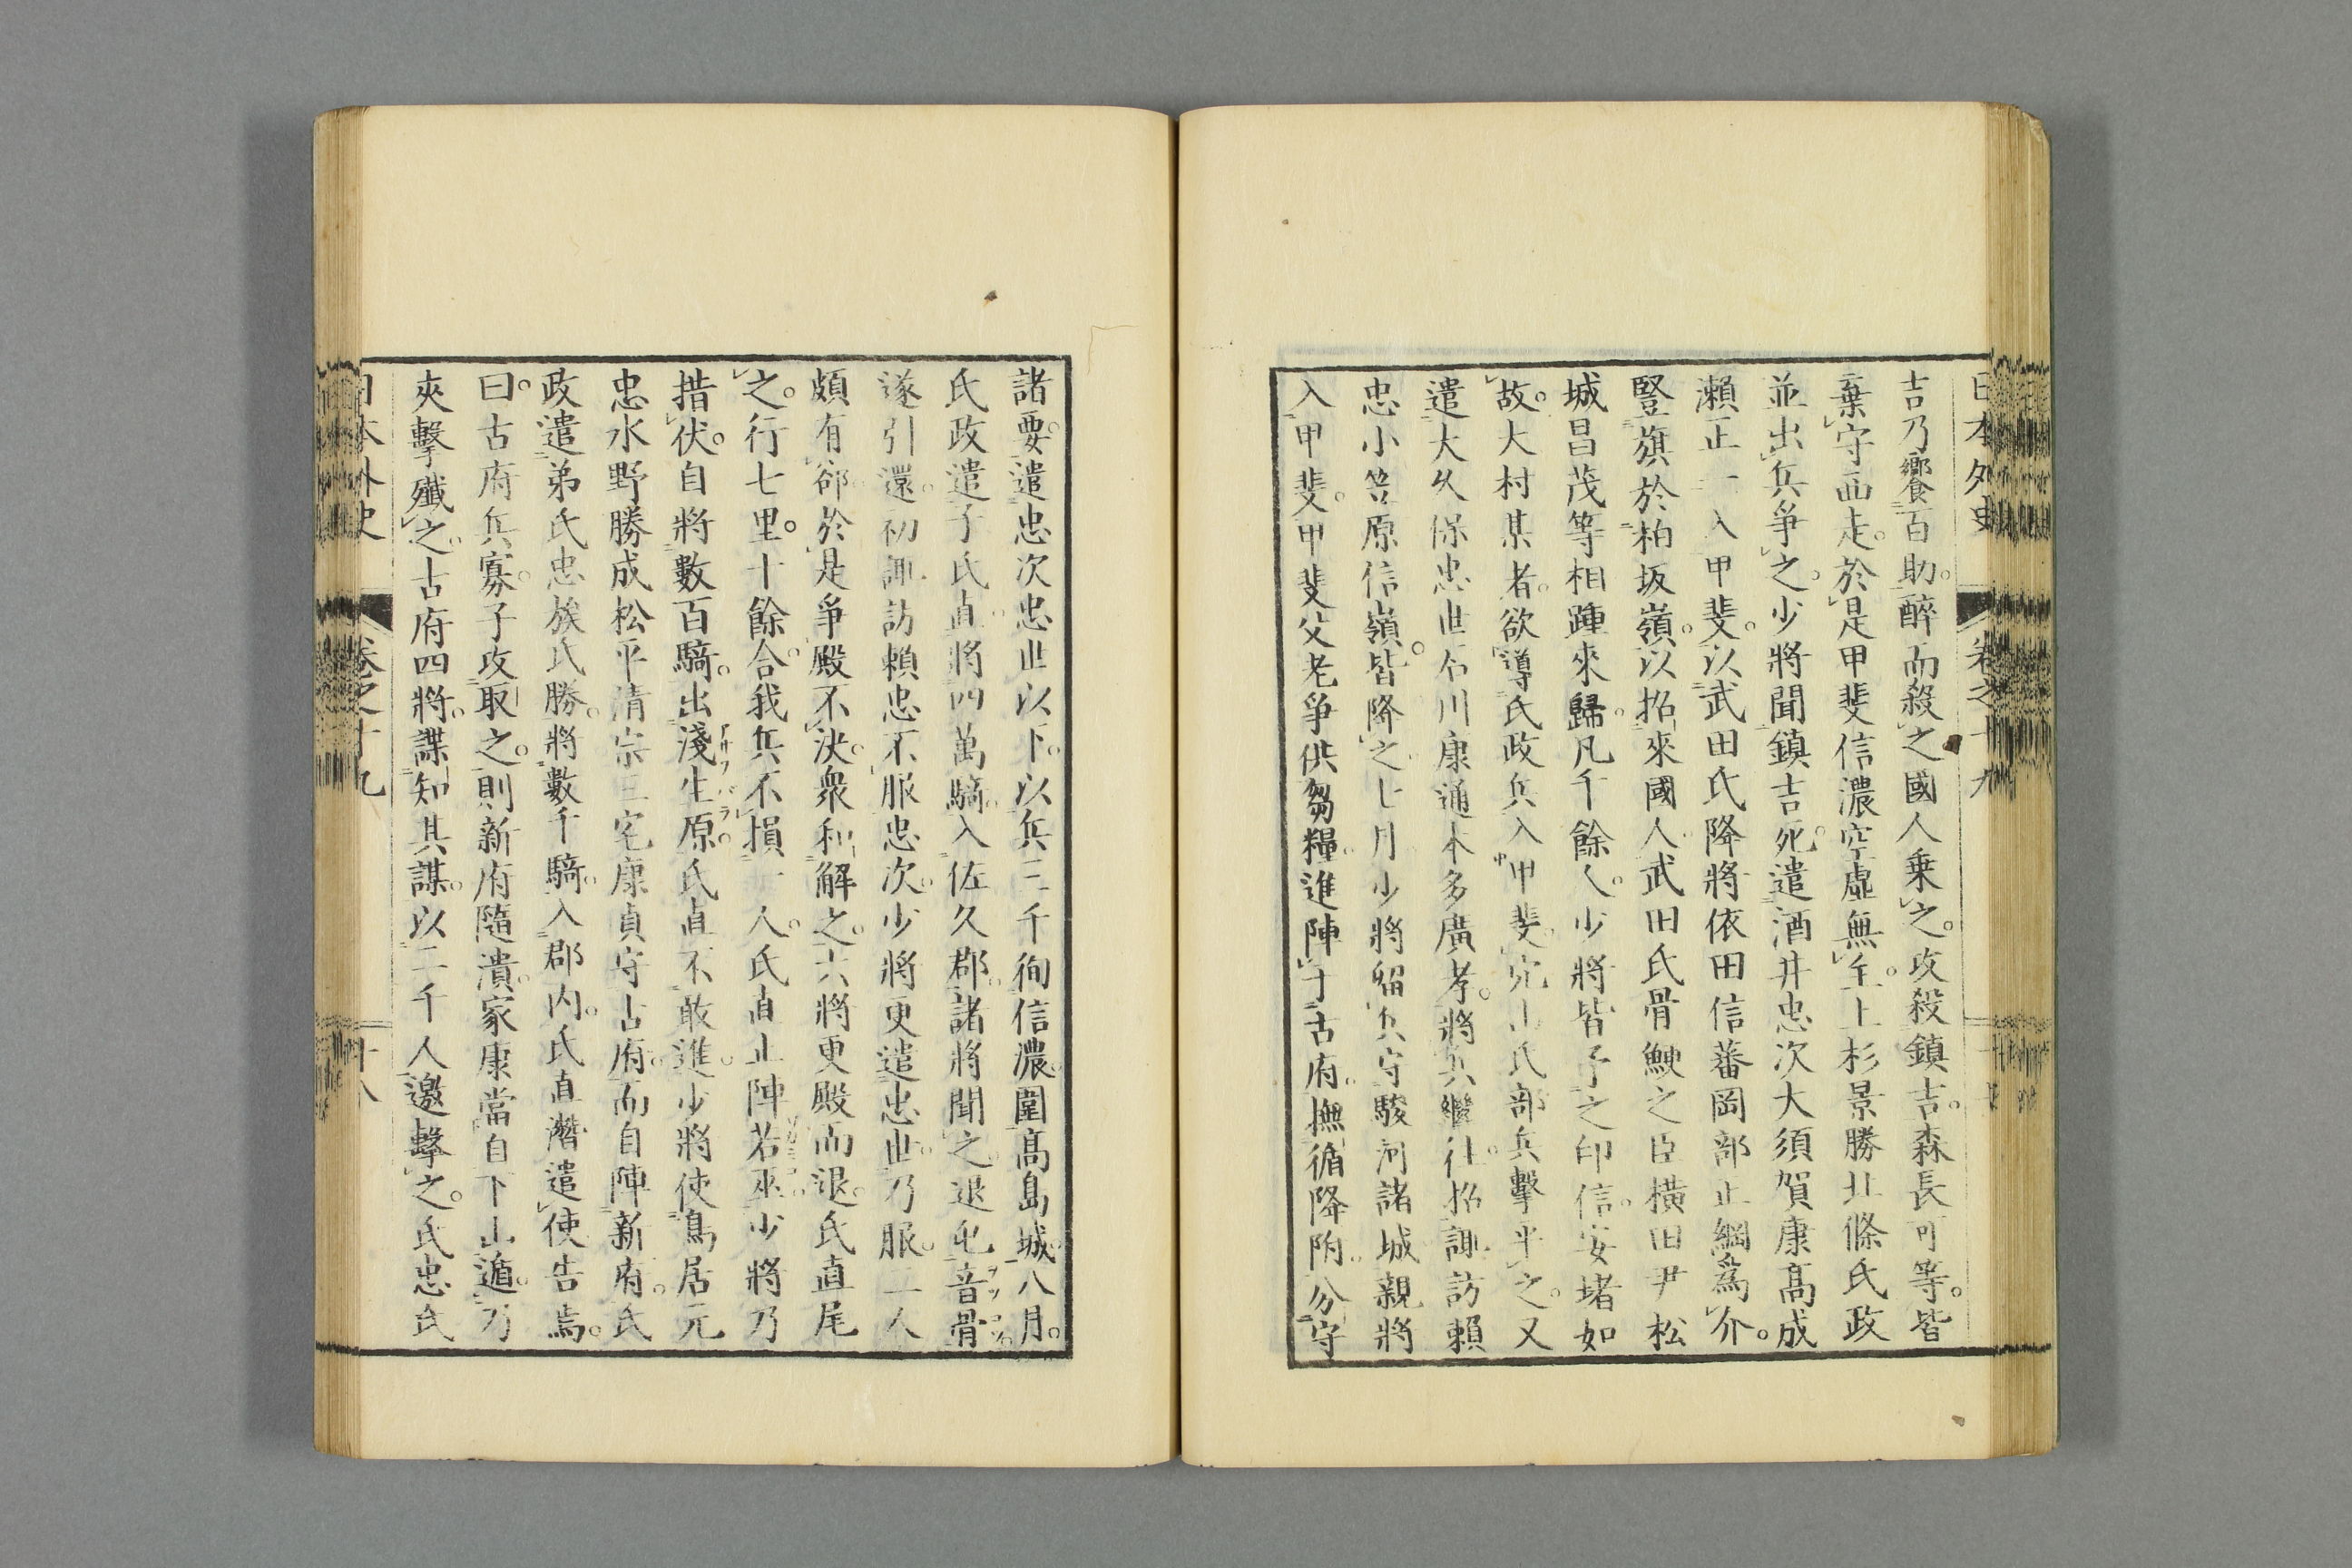 日本外史 卷之十九
吉乃饗百助。醉而殺之國人乗之。攻殺鎮吉。森長可等。皆
棄守西走。於是甲斐信濃空虚無主。上杉景勝北條氏政
並出兵爭之。少將聞鎮吉死。遣酒井忠次大須賀康高成
瀬正一入甲斐。以武田氏降將依田信蕃岡部正綱爲介。
豎旗於柏坂嶺。以招來國人。武田氏骨鯁之臣横田尹松
城昌茂等相踵來歸。凡千餘人。少將皆予之印信。安堵如
故。大村某者。欲導氏政兵入甲斐。穴山氏部兵擊平之。又
遣大久保忠世石川康通本多廣孝。將兵繼往。招諏訪賴
忠小笠原信嶺。皆降之。七月少將留兵守駿河諸城親將
入甲斐。甲斐父老爭供芻糧。進陣于古府。撫循降附。分守
諸要。遣忠次忠世以下。以兵三千徇信濃。圍高島城。八月。
氏政遣子氏直。將四萬騎。入佐久郡。諸將聞之。退屯音骨
遂引還。初諏訪賴忠不服忠次。少將更遣忠世。乃服。二人
頗有郤。於是爭殿不決。衆和解之。六將更殿而退。氏直尾
之。行七里。十餘合。我兵不損一人。氏直止陣若巫。少將乃
措伏。自將數百騎。出淺生原。アサフバラ氏直不敢進。少將使鳥居元
忠水野勝成松平清宗三宅康貞守古府。而自陣新府。氏
政遣弟氏忠族氏勝。將數千騎。入郡内。氏直潛遣使告焉。
曰。古府兵寡。子攻取之。則新府隨潰。家康當自下山遁。乃
夾擊殲之。古府四將。諜知其謀。以二千人邀擊之。氏忠氏
日本外史 卷之十九 十八